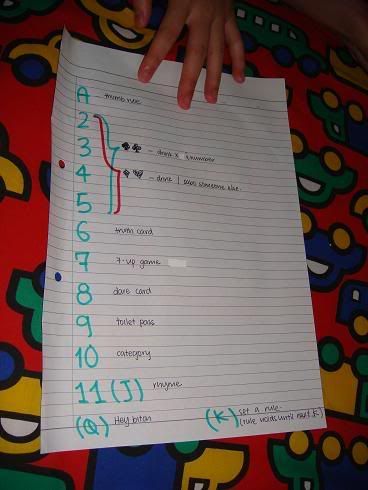 A - thumb rule
2
3 ♠ ♣ - drink x number
4 ♦ ♥ - drink / someone else.
5
6 truth card
7 7-up game
8 dare card
9 toilet pass
10 category
11 (J) rhyme
(Q) Hey bitch
(K) set a rule.
(rule voids until next K)